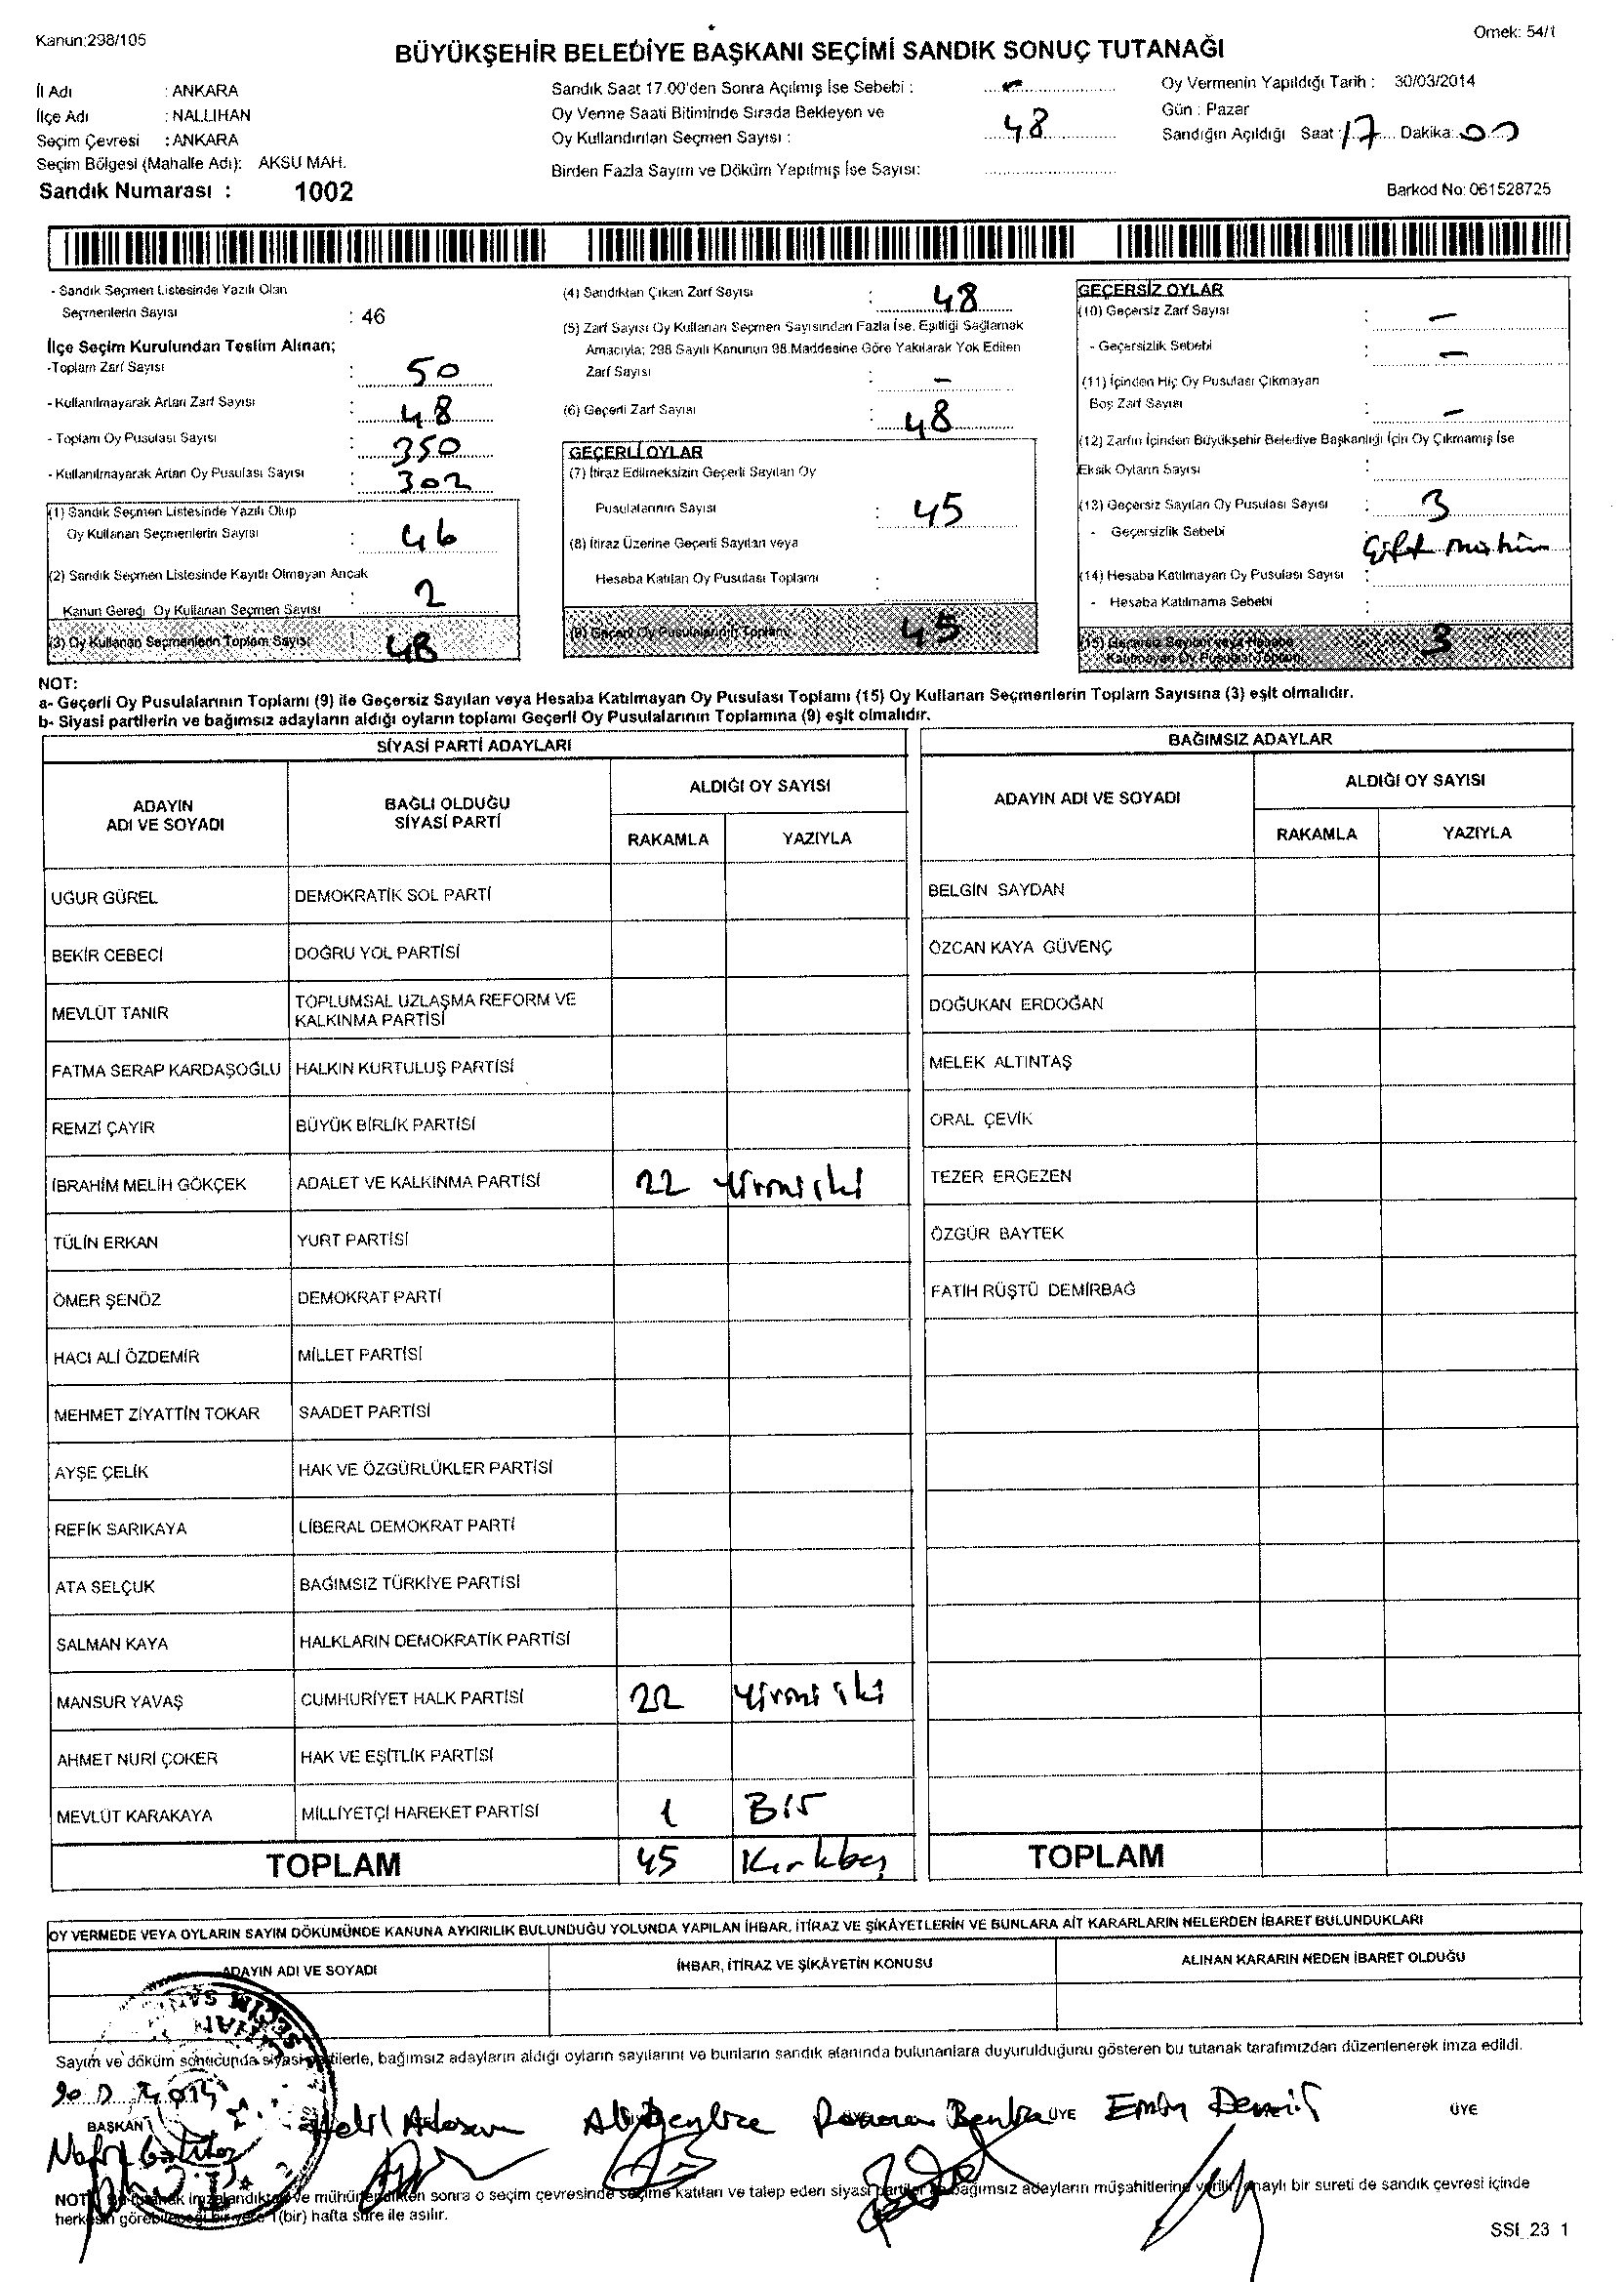 Kanun:298/105
Örnek: 54/1
BÜYÜKŞEHİR BELEDİYE BAŞKANI SEÇİMİ SANDIK SONUÇ TUTANAĞI
İl Adı : ANKARA
İlçe Adı : NALLIHAN
Seçim Çevresi : ANKARA
Seçim Bölgesi (Mahalle Adı): AKSU MAH.
Sandık Numarası : 1002
Sandık Saat 17.00'den Sonra Açılmış İse Sebebi : -
Oy Verme Saati Bitiminde Sırada Bekleyen ve
Oy Kullandırılan Seçmen Sayısı : 48
Birden Fazla Sayım ve Döküm Yapılmış İse Sayısı:
Oy Vermenin Yapıldığı Tarih : 30/03/2014
Gün : Pazar
Sandığın Açıldığı Saat : 17 Dakika: 00
Barkod No: 061528725
- Sandık Seçmen Listesinde Yazılı Olan
Seçmenlerin Sayısı : 46
İlçe Seçim Kurulundan Teslim Alınan;
-Toplam Zarf Sayısı : 50
- Kullanılmayarak Artan Zarf Sayısı : 48
- Toplam Oy Pusulası Sayısı : 350
- Kullanılmayarak Artan Oy Pusulası Sayısı : 302
(1) Sandık Seçmen Listesinde Yazılı Olup
Oy Kullanan Seçmenlerin Sayısı : 46
(2) Sandık Seçmen Listesinde Kayıtlı Olmayan Ancak
Kanun Gereği Oy Kullanan Seçmen Sayısı : 2
(3) Oy Kullanan Seçmenlerin Toplam Sayısı : 48
(4) Sandıktan Çıkan Zarf Sayısı : 48
(5) Zarf Sayısı Oy Kullanan Seçmen Sayısından Fazla İse, Eşitliği Sağlamak
Amacıyla; 298 Sayılı Kanunun 98.Maddesine Göre Yakılarak Yok Edilen
Zarf Sayısı : -
(6) Geçerli Zarf Sayısı : 48
GEÇERLİ OYLAR
(7) İtiraz Edilmeksizin Geçerli Sayılan Oy
Pusulalarının Sayısı : 45
(8) İtiraz Üzerine Geçerli Sayılan veya
Hesaba Katılan Oy Pusulası Toplamı :
(9) Geçerli Oy Pusulalarının Toplamı 45
GEÇERSİZ OYLAR
(10) Geçersiz Zarf Sayısı : -
- Geçersizlik Sebebi : -
(11) İçinden Hiç Oy Pusulası Çıkmayan
Boş Zarf Sayısı : -
(12) Zarfın İçinden Büyükşehir Belediye Başkanlığı İçin Oy Çıkmamış İse
Eksik Oyların Sayısı :
(13) Geçersiz Sayılan Oy Pusulası Sayısı : 3
- Geçersizlik Sebebi : Çift mühür
(14) Hesaba Katılmayan Oy Pusulası Sayısı :
- Hesaba Katılmama Sebebi :
(15) Geçersiz Sayılan veya Hesaba
Katılmayan Oy Pusulası Toplamı 3
NOT:
a- Geçerli Oy Pusulalarının Toplamı (9) ile Geçersiz Sayılan veya Hesaba Katılmayan Oy Pusulası Toplamı (15) Oy Kullanan Seçmenlerin Toplam Sayısına (3) eşit olmalıdır.
b- Siyasi partilerin ve bağımsız adayların aldığı oyların toplamı Geçerli Oy Pusulalarının Toplamına (9) eşit olmalıdır.
SİYASİ PARTİ ADAYLARI
ADAYIN ADI VE SOYADI BAĞLI OLDUĞU SİYASİ PARTİ ALDIĞI OY SAYISI
RAKAMLA YAZIYLA
UĞUR GÜREL DEMOKRATİK SOL PARTİ
BEKİR CEBECİ DOĞRU YOL PARTİSİ
MEVLÜT TANIR TOPLUMSAL UZLAŞMA REFORM VE
KALKINMA PARTİSİ
FATMA SERAP KARDAŞOĞLU HALKIN KURTULUŞ PARTİSİ
REMZİ ÇAYIR BÜYÜK BİRLİK PARTİSİ
İBRAHİM MELİH GÖKÇEK ADALET VE KALKINMA PARTİSİ 22 Yirmi iki
TÜLİN ERKAN YURT PARTİSİ
ÖMER ŞENÖZ DEMOKRAT PARTİ
HACI ALİ ÖZDEMİR MİLLET PARTİSİ
MEHMET ZİYATTİN TOKAR SAADET PARTİSİ
AYŞE ÇELİK HAK VE ÖZGÜRLÜKLER PARTİSİ
REFİK SARIKAYA LİBERAL DEMOKRAT PARTİ
ATA SELÇUK BAĞIMSIZ TÜRKİYE PARTİSİ
SALMAN KAYA HALKLARIN DEMOKRATİK PARTİSİ
MANSUR YAVAŞ CUMHURİYET HALK PARTİSİ 22 Yirmi iki
AHMET NURİ ÇOKER HAK VE EŞİTLİK PARTİSİ
MEVLÜT KARAKAYA MİLLİYETÇİ HAREKET PARTİSİ 1 Bir
TOPLAM 45 Kırkbeş
BAĞIMSIZ ADAYLAR
ADAYIN ADI VE SOYADI ALDIĞI OY SAYISI
RAKAMLA YAZIYLA
BELGİN SAYDAN
ÖZCAN KAYA GÜVENÇ
DOĞUKAN ERDOĞAN
MELEK ALTINTAŞ
ORAL ÇEVİK
TEZER ERGEZEN
ÖZGÜR BAYTEK
FATİH RÜŞTÜ DEMİRBAĞ
TOPLAM
OY VERMEDE VEYA OYLARIN SAYIM DÖKÜMÜNDE KANUNA AYKIRILIK BULUNDUĞU YOLUNDA YAPILAN İHBAR, İTİRAZ VE ŞİKÂYETLERİN VE BUNLARA AİT KARARLARIN NELERDEN İBARET BULUNDUKLARI
ADAYIN ADI VE SOYADI İHBAR, İTİRAZ VE ŞİKÂYETİN KONUSU ALINAN KARARIN NEDEN İBARET OLDUĞU
Sayım ve döküm sonucunda siyasi partilerle, bağımsız adayların aldığı oyların sayılarını ve bunların sandık alanında bulunanlara duyurulduğunu gösteren bu tutanak tarafımızdan düzenlenerek imza edildi.
BAŞKAN ÜYE ÜYE
Emin Demir
NOT: Bu tutanak imzalandıktan ve mühürlendikten sonra o seçim çevresinde seçime katılan ve talep eden siyasi partiler ve bağımsız adayların müşahitlerine verilir, onaylı bir sureti de sandık çevresi içinde
herkesin görebileceği bir yere 1(bir) hafta süre ile asılır.
SSI_23 1